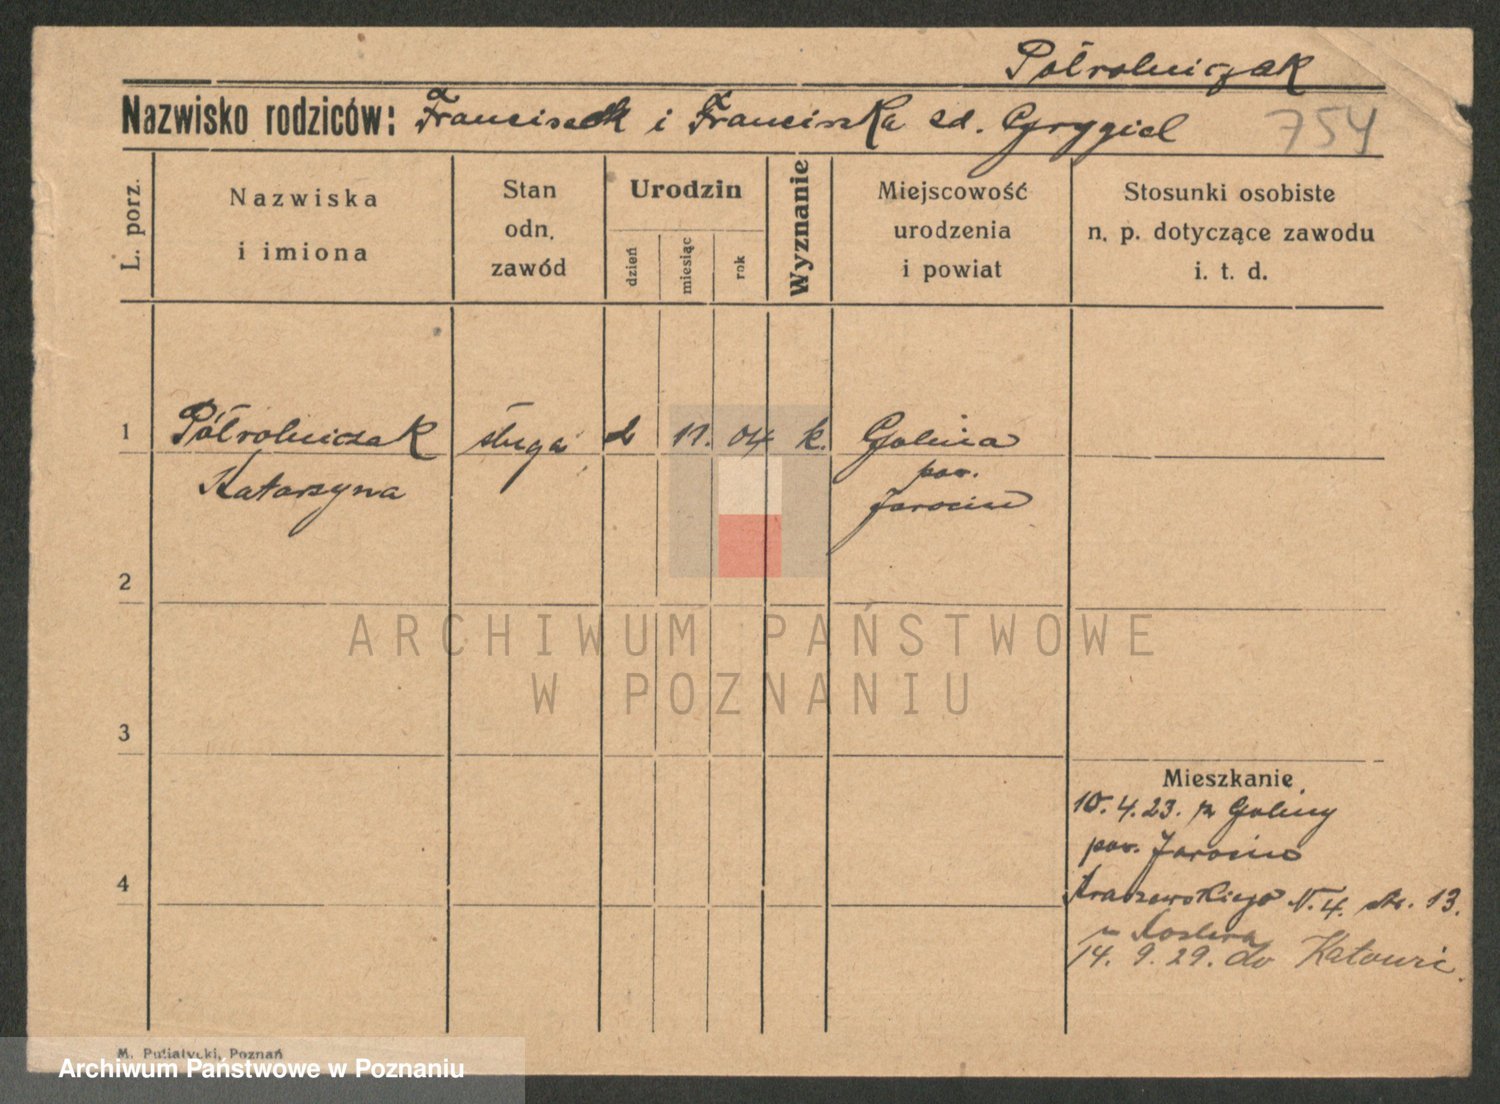 Półrolniczak
Nazwisko rodziców: Franciszek i Franciszka zd. Grygiel
754
L. porz.
Nazwiska
i imiona
Stan
odn.
zawód
Urodzin
dzień
miesiąc
rok
Wyznanie
Miejscowość
urodzenia
i powiat
Stosunki osobiste
n. p. dotyczące zawodu
i. t. d.
1
Półrolniczak
Katarzyna
sługa
11. 04
k.
Golina
pow.
Jarocin
2
3
4
ARCHIWUM PAŃSTWOWE
W POZNANIU
Mieszkanie
10. 4. 23. z Goliny
pow. Jarocin
Kraszewskiego N. 4. 13.
14. 9. 29. do Katowic.
M. Putiatycki, Poznań
Archiwum Państwowe w Poznaniu